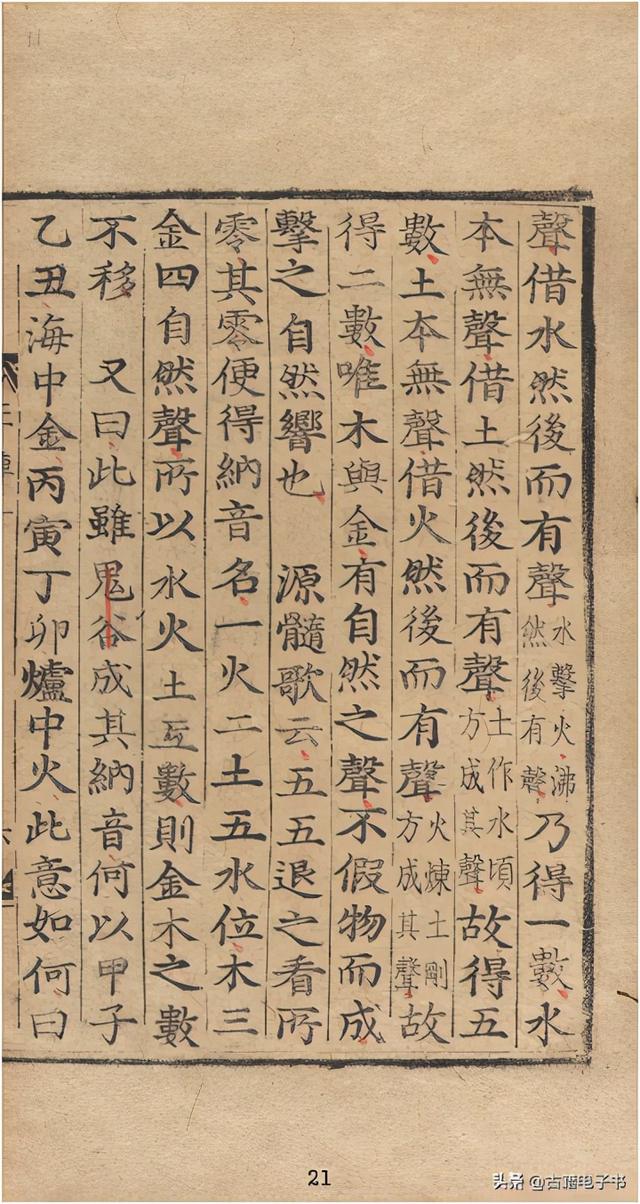 聲借水然後而有聲水擊火沸然後有聲乃得一數水
本無聲借土然後而有聲土作水頃方成其聲故得五
數土本無聲借火然後而有聲火煉土剛方成其聲故
得二數唯木與金有自然之聲不假物而成
擊之自然響也 源髓歌云五五退之看所
零其零便得納音名一火二土五水位木三
金四自然聲所以水火土互數則金木之數
不移 又曰此雖鬼谷成其納音何以甲子
乙丑海中金丙寅丁卯爐中火此意如何曰
21
头条 @古籍电子书